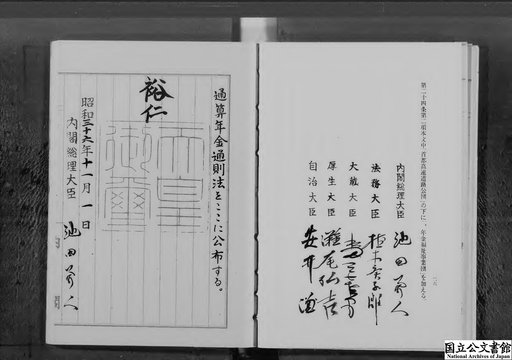 第二十四条第二項本文中「首都高速道路公団」の下に「、年金福祉事業団」を加える。
内閣総理大臣 池田勇人
法務大臣 植木庚子郎
大蔵大臣 水田三喜男
厚生大臣 灘尾弘吉
自治大臣 安井謙
通算年金通則法をここに公布する。
裕仁
天皇御璽
昭和三十六年十一月一日
内閣総理大臣 池田勇人
国立公文書館
National Archives of Japan